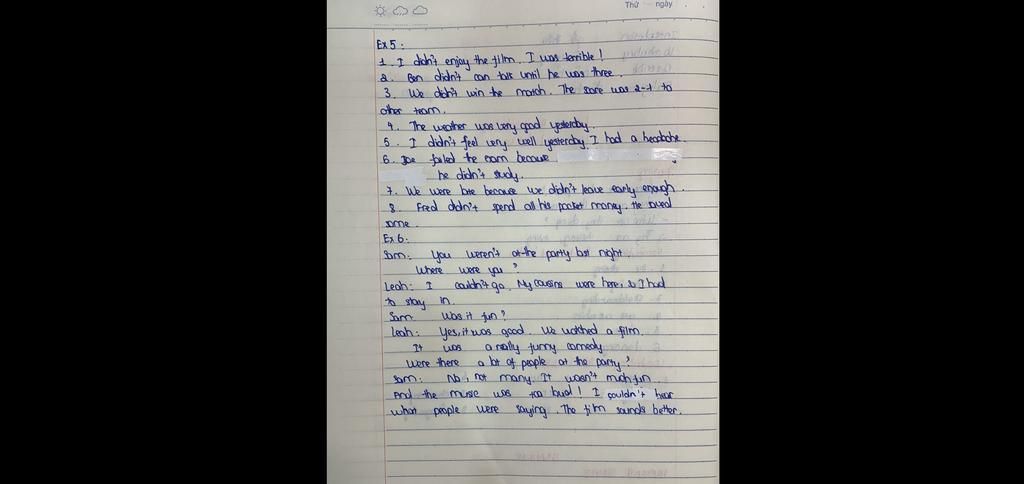 Thứ ngày
Ex 5:
1. I didn't enjoy the film. I was terrible!
2. Ben didn't can talk until he was three.
3. We didn't win the match. The score was 2-1 to
other team.
4. The weather was very good yesterday.
5. I didn't feel very well yesterday. I had a headache
6. Joe failed the exam because
he didn't study.
7. We were late because we didn't leave early enough.
8. Fred didn't spend all his pocket money. He saved
some.
Ex 6:
Sam: You weren't at the party last night.
Where were you?
Leah: I couldn't go. My cousins were here, so I had
to stay in.
Sam: Was it fun?
Leah: Yes, it was good. We watched a film.
It was a really funny comedy
Were there a lot of people at the party?
Sam: No, not many. It wasn't much fun.
And the music was too loud! I couldn't hear
what people were saying. The film sounds better.